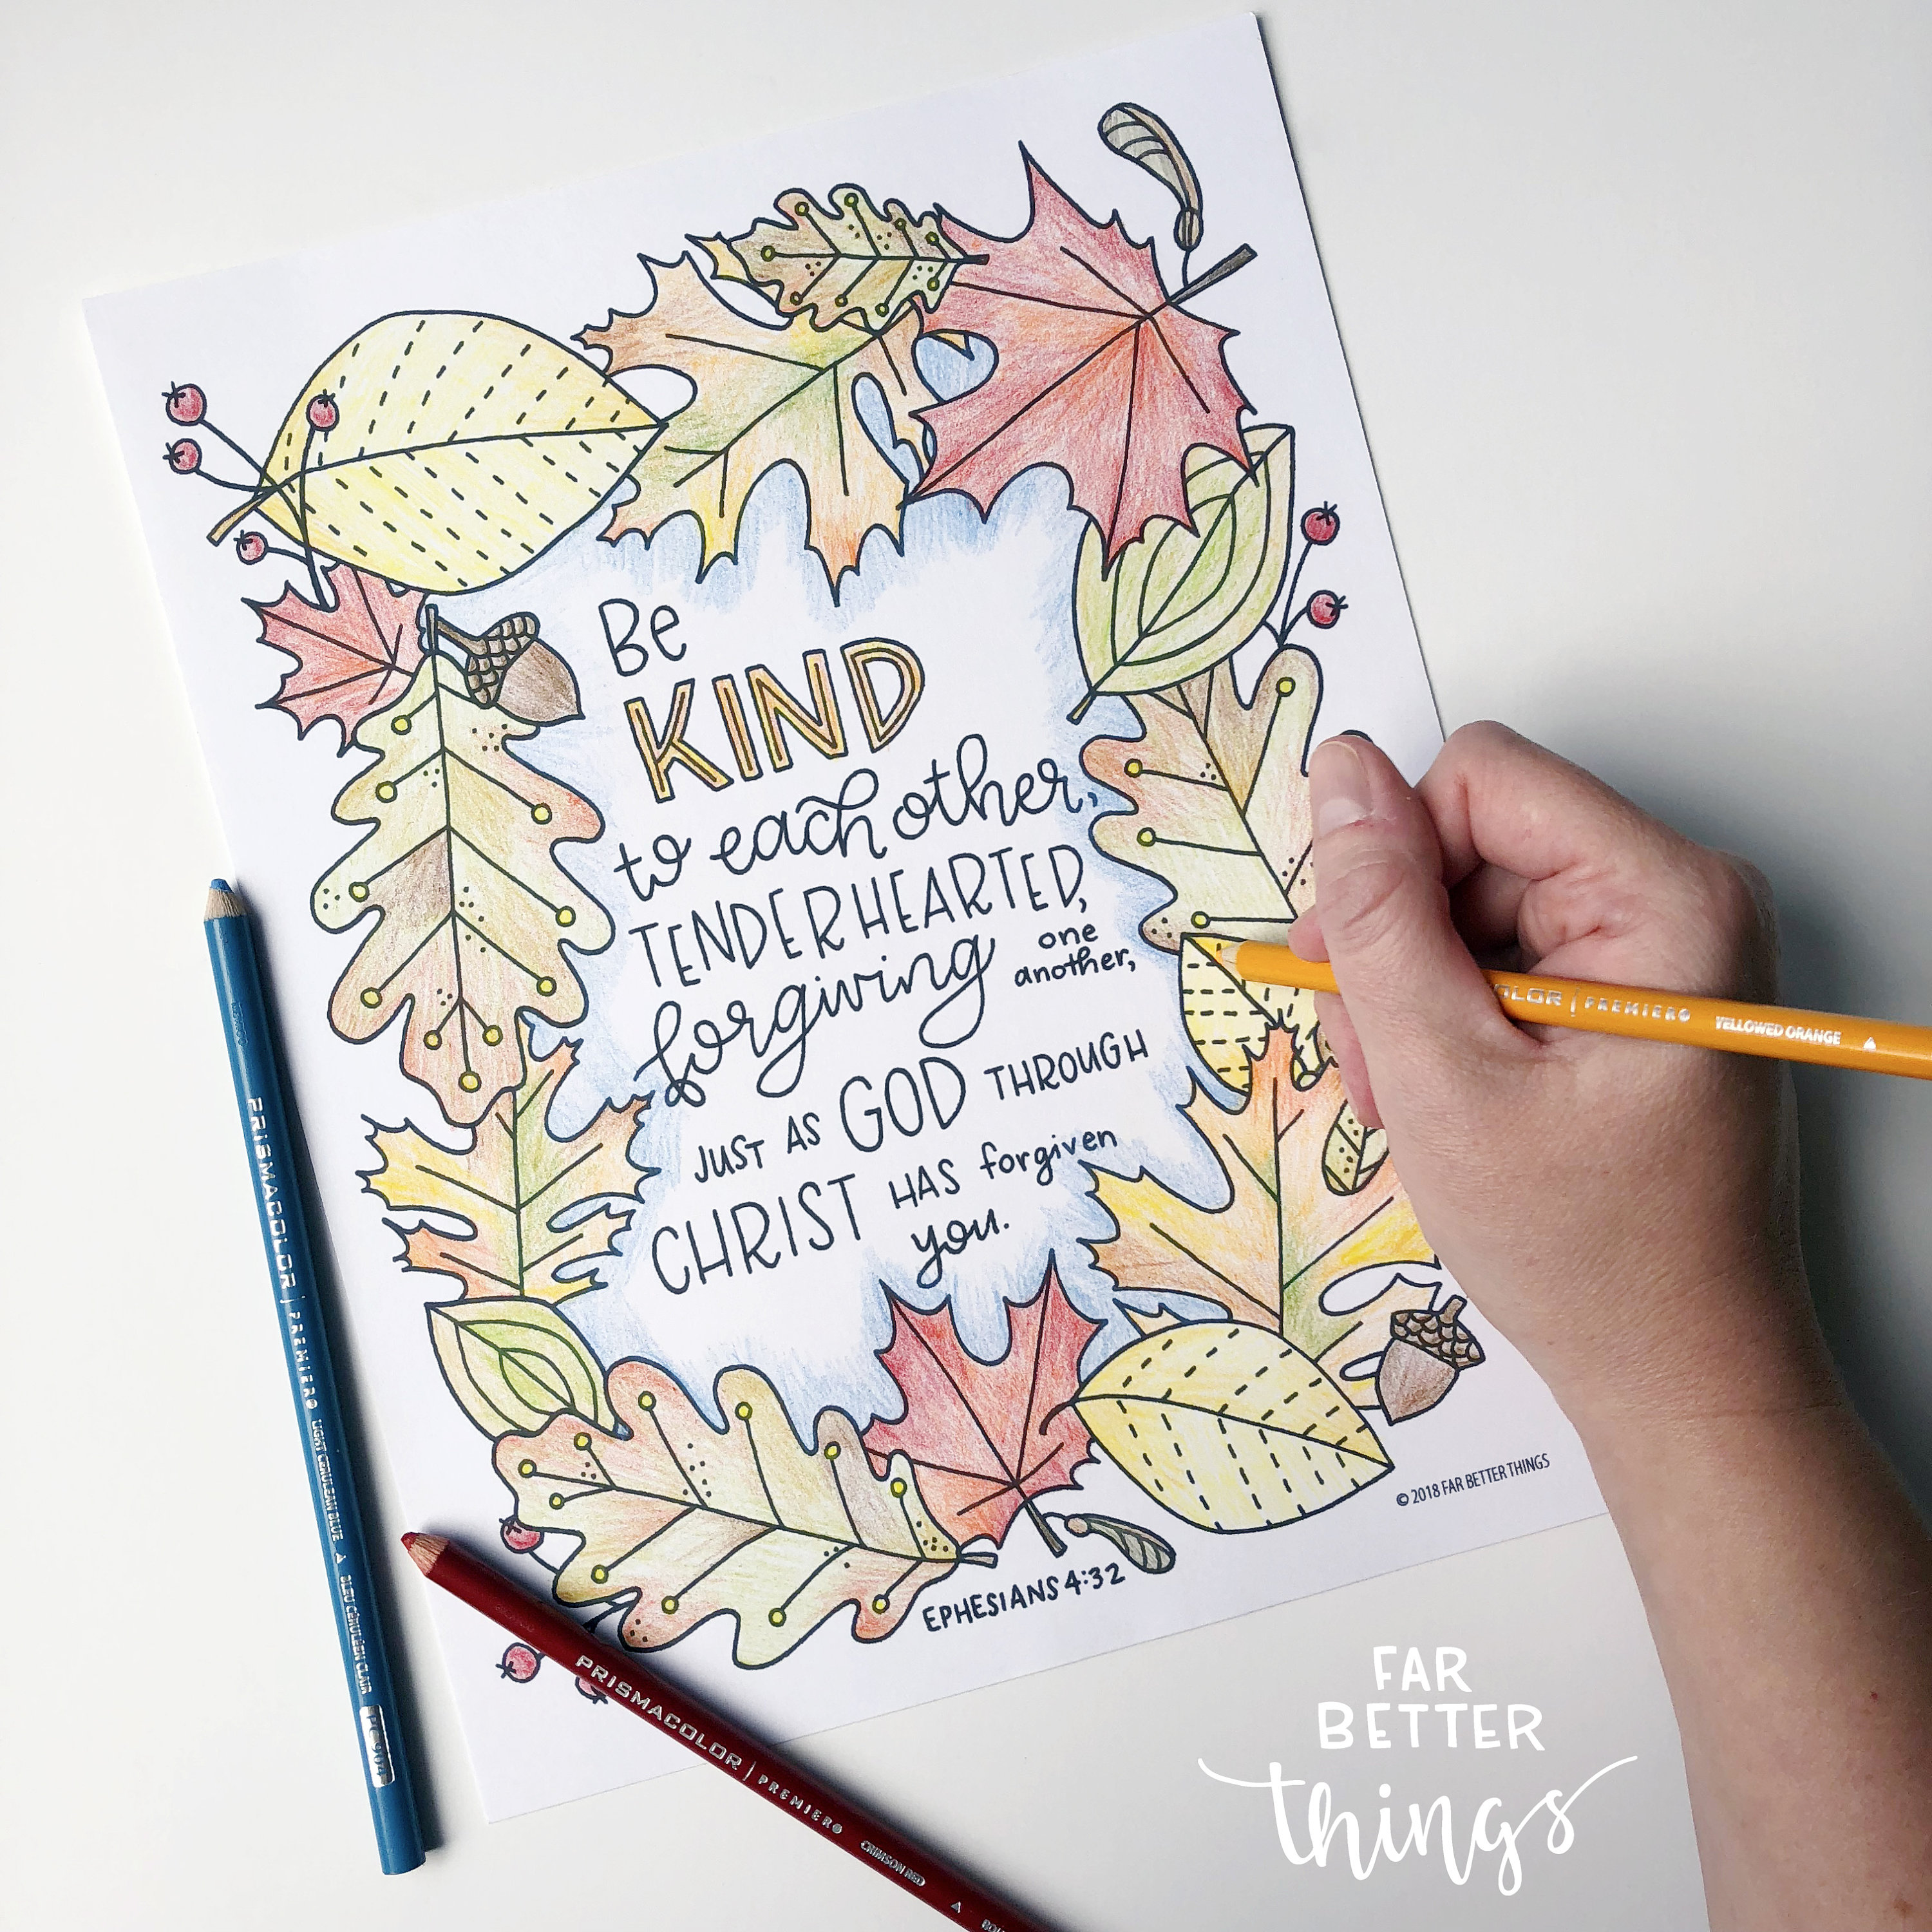 Be
KIND
to each other,
TENDERHEARTED,
forgiving one another,
JUST AS GOD THROUGH
CHRIST HAS forgiven
you.
© 2018 FAR BETTER THINGS
EPHESIANS 4:32
PRISMACOLOR | PREMIER® LIGHT CERULEAN BLUE BLEU CÉRULÉEN CLAIR PC 904
PRISMACOLOR | PREMIER® CRIMSON RED
OLOR | PREMIER® YELLOWED ORANGE
FAR
BETTER
things